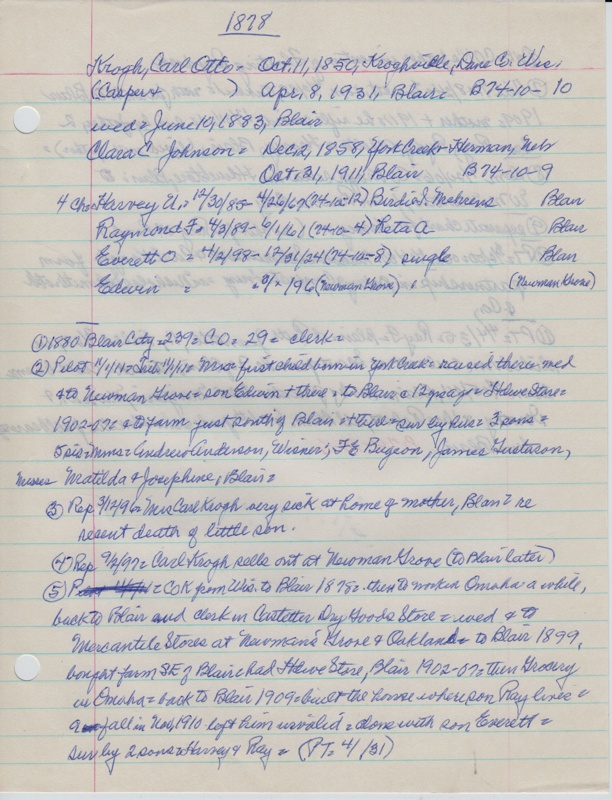 1878
Krogh, Carl Otto = Oct. 11, 1850, Kroghville, Dane C. Wis.
(Casper + ) Apr. 8, 1931, Blair = B74-10-10
wed = June 10, 1883, Blair
Clara C Johnson = Dec. 2, 1858, York Creek = Herman, Neb
Oct. 31, 1911, Blair B74-10-9
4 ch = Harvey U. = 12/30/85 = 4/26/67 (74-10-12) Birdie S. Mehrens Blair
Raymond F = 4/3/89 = 6/1/61 (74-10-4) Neta A Blair
Everett O = 4/2/98 = 12/31/24 (74-10-8) single Blair
Edwin = 96 (Newman Grove) (Newman Grove)
① 1880 Blair City = 239 = C O = 29 = clerk =
② Pilot = Mrs = first child born in York Creek = raised there = wed
+ to Newman Grove = son Edwin + there = to Blair c 12 yrs ago = Hdwe Store =
1902-07 = + to farm just south of Blair + there = sur by hus = 3 sons =
5 sis = Mmes = Andrew Anderson, Wisner, F E Bugeon, James Gustason,
Misses Matilda + Josephine, Blair =
③ Rep 3/12/96 = Mrs Carl Krogh very sick at home of mother, Blair = re
resent death of little son.
④ Rep 9/2/97 = Carl Krogh sells out at Newman Grove (to Blair later)
⑤ = C O K from Wis. to Blair 1875 = then to work in Omaha a while,
back to Blair and clerk in Castetter Dry Goods Store = wed + to
Mercantile Stores at Newman's Grove + Oakland = to Blair 1899,
bought farm SE of Blair = had Hdwe Store, Blair 1902-07 = then Grocery
in Omaha = back to Blair 1909 = built the house where son Ray lives =
a fall in Nov, 1910 left him invalid = alone with son Everett =
sur by 2 sons = Harvey + Ray = (PT = 4/31)